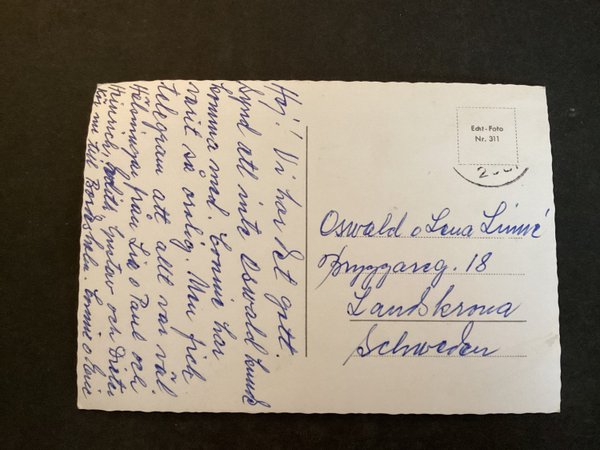 Hej! Vi har det gott.
Synd att inte Oswald kunde
komma med. Connie har
varit så orolig. Men fick
telegram att allt var väl
Hälsningar från Lie o Paul och
Heinrich, Gustav och
kör nu till Bordesholm.
Edst-Foto
Nr. 311
Oswald o Lena Linné
Bryggareg. 18
Landskrona
Schweden